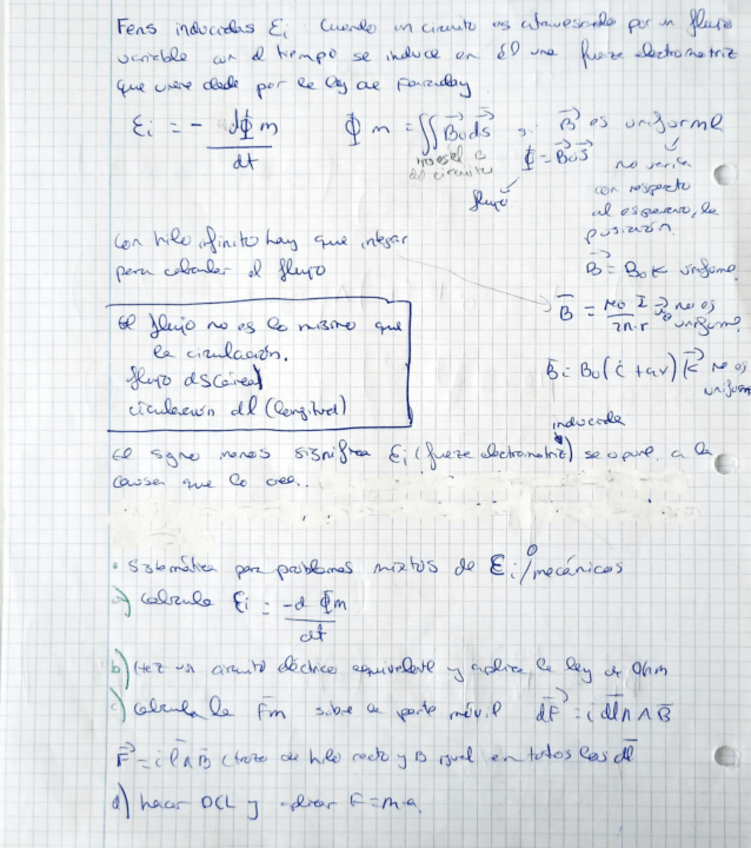 Fems inducidas Ei Cuando un circuito es atravesado por un flujo
variable con el tiempo se induce en él una fuerza electromotriz
que viene dada por la ley de Faraday
Ei = - dΦm / dt
Φm = ∬ B⃗ o dS⃗ si B⃗ es uniforme
no es el B
del circuito
Φ = B⃗ o S⃗
flujo
no varía
con respecto
al espacio, la
posición.
Con hilo infinito hay que integrar
para calcular el flujo
B⃗ = B₀ K uniforme
B⃗ = μ₀ I / 2π·r no es
uniforme
El flujo no es lo mismo que
la circulación.
flujo dS (área)
circulación dl (longitud)
B = B₀ ( ) K⃗ no es
uniforme
inducida
El signo menos significa Ei (fuerza electromotriz) se opone a la
causa que lo crea.
• Sistemática para problemas mixtos de Ei/mecánicos
a) calcula Ei = -dΦm / dt
b) Haz un circuito eléctrico equivalente y aplica la ley de Ohm
c) calcula la Fm sobre la parte móvil dF⃗ = i dl⃗ ∧ B
F⃗ = i l ∧ B (trozo de hilo recto y B igual en todos los dl
d) hacer DCL y aplicar F=m·a.